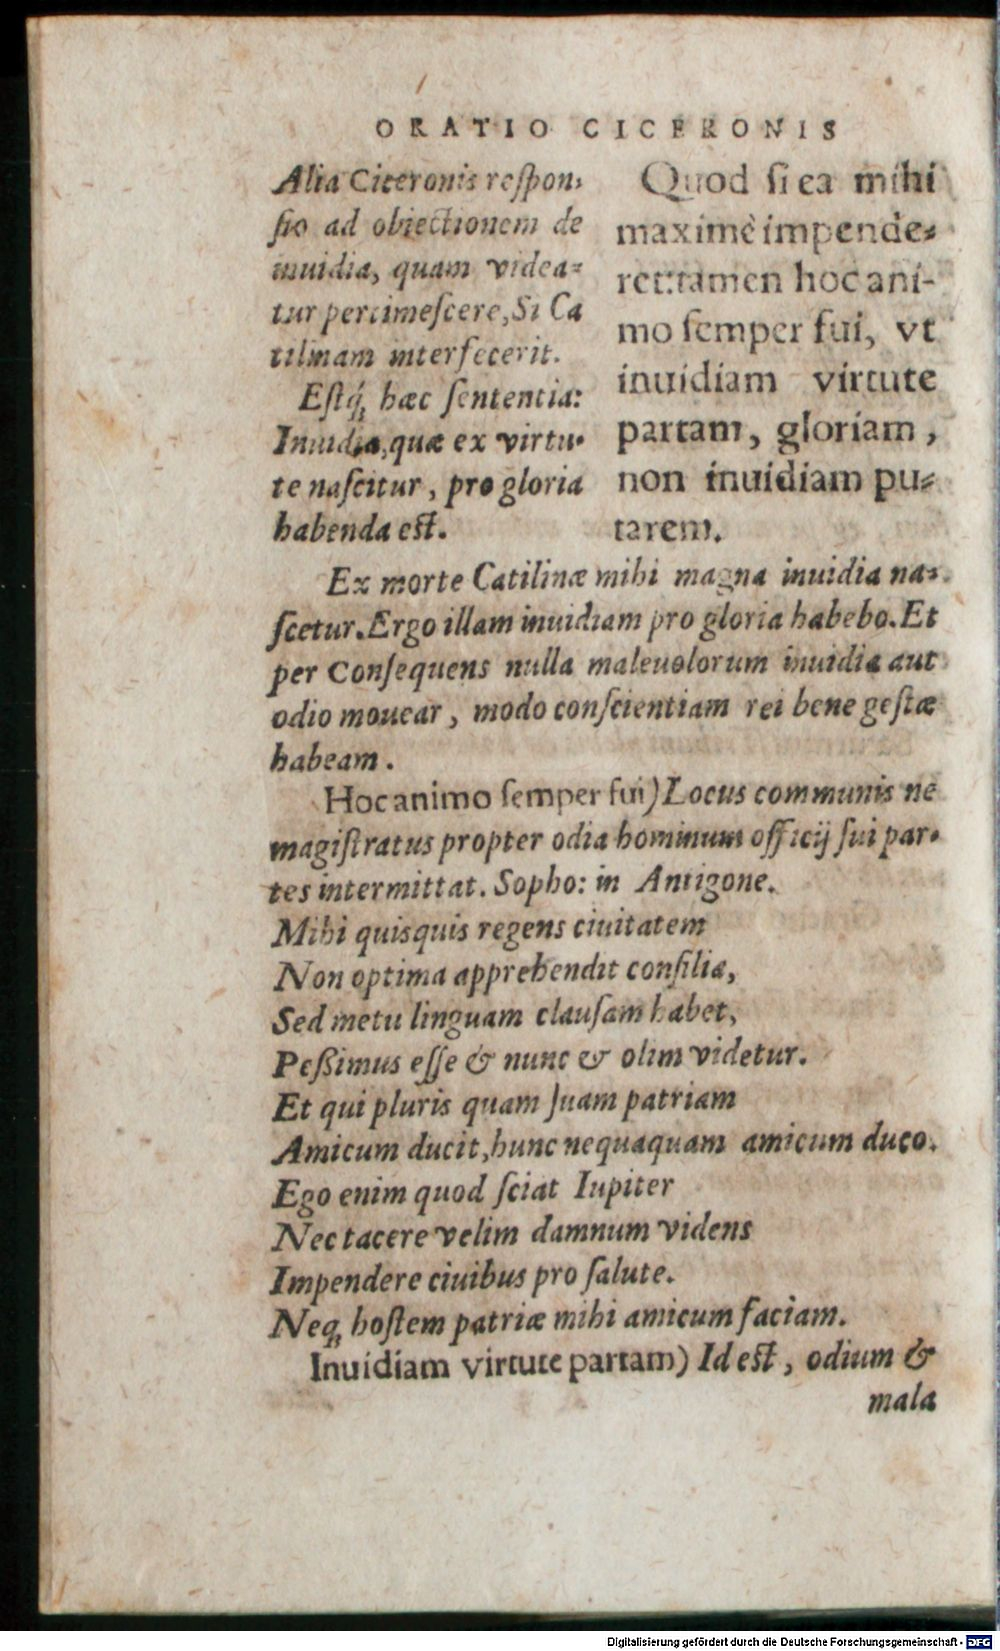 ORATIO CICERONIS
Alia Ciceronis respon-
sio ad obiectionem de
inuidia, quam videa-
tur pertimescere, Si Ca
tilinam interfecerit.
Estq́; hæc sententia:
Inuidia, quæ ex virtu-
te nascitur, pro gloria
habenda est.
Quod si ea mihi
maximè impende-
ret: tamen hoc ani-
mo semper fui, vt
inuidiam virtute
partam, gloriam,
non inuidiam pu-
tarem.
Ex morte Catilinæ mihi magna inuidia na-
scetur. Ergo illam inuidiam pro gloria habebo. Et
per Consequens nulla maleuolorum inuidia aut
odio mouear, modo conscientiam rei bene gestæ
habeam.
Hoc animo semper fui) Locus communis ne
magistratus propter odia hominum officij sui par-
tes intermittat. Sopho: in Antigone.
Mihi quisquis regens ciuitatem
Non optima apprehendit consilia,
Sed metu linguam clausam habet,
Peßimus esse & nunc & olim videtur.
Et qui pluris quam suam patriam
Amicum ducit, hunc nequaquam amicum duco.
Ego enim quod sciat Iupiter
Nec tacere velim damnum videns
Impendere ciuibus pro salute.
Neq; hostem patriæ mihi amicum faciam.
Inuidiam virtute partam) Id est, odium &
mala
Digitalisierung gefördert durch die Deutsche Forschungsgemeinschaft - DFG